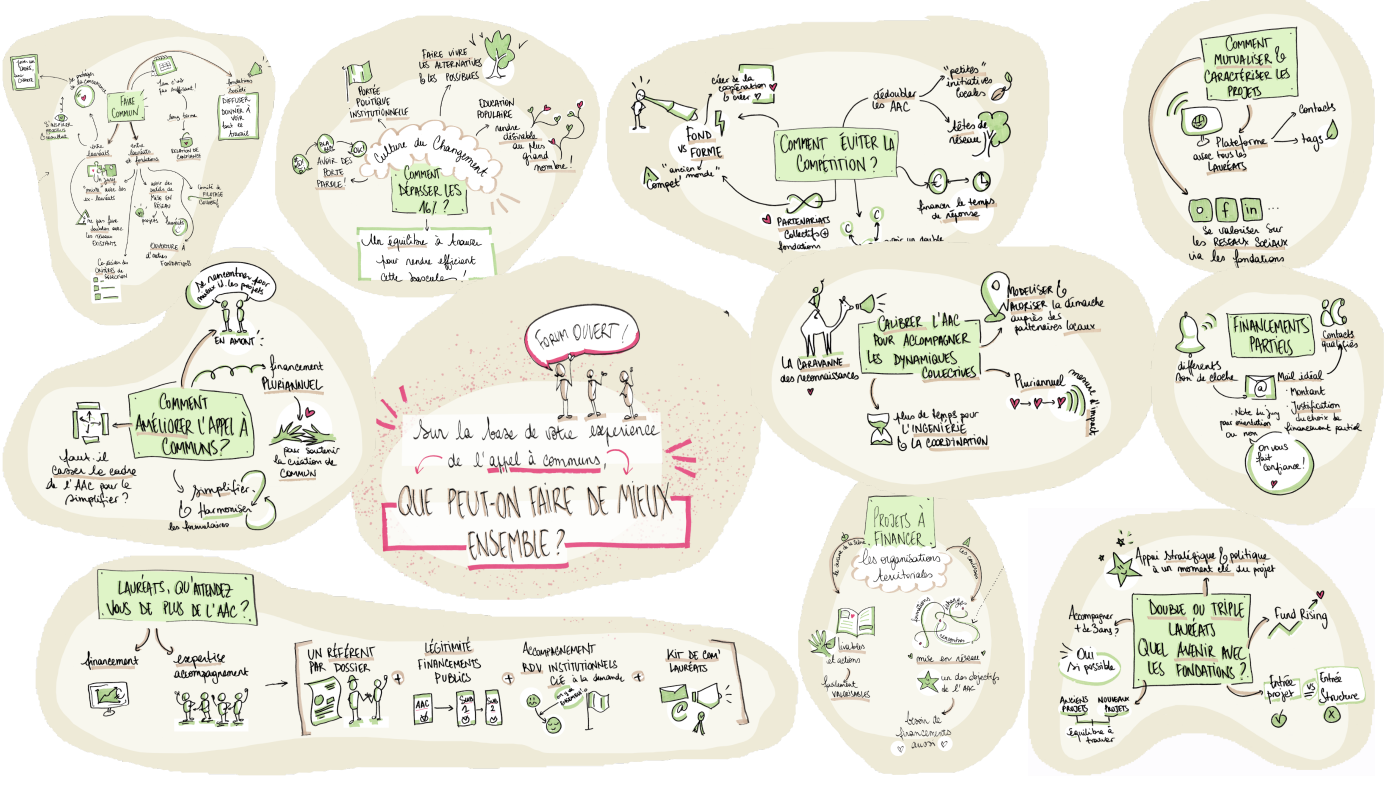 FAIRE
COMMUN
entre
lauréats
entre
lauréats
et fondations
long terme
fondations
DIFFUSER
DONNER À
VOIR
tout ce
travail
projets
lauréats
Comité de
PILOTAGE
Collectif
ne pas faire
doublon avec
les réseaux
EXISTANTS
OUVERTURE À
d'autres
FONDATIONS
Co-décision des
CRITÈRES de
SÉLECTION
FAIRE VIVRE
LES ALTERNATIVES
& LES POSSIBLES
PORTÉE
POLITIQUE
INSTITUTIONNELLE
EDUCATION
POPULAIRE
rendre
désirable
au plus
grand
nombre!
BLA
AVOIR DES
PORTE
PAROLE!
Culture du Changement
COMMENT
DÉPASSER LES
16/ ?
Un équilibre à trouver
pour rendre efficient
cette bascule !
créer de la
coopération
FOND
VS FORME
"ancien
Compet' monde"
COMMENT ÉVITER LA
COMPÉTITION ?
dédoubler
les AAC
"petites"
initiatives
locales
têtes de
réseau
€
financer le temps
de réponse
PARTENARIATS
Collectifs +
fondations
C
C
COMMENT
MUTUALISER &
CARACTÉRISER LES
PROJETS
Contacts
tags
Plateforme
avec tous les
LAURÉATS
f
in
...
se valoriser sur
les RÉSEAUX SOCIAUX
via les fondations
se rencontrer pour
les projets
EN AMONT!
financement
PLURIANNUEL
COMMENT
AMÉLIORER L'APPEL À
COMMUNS?
pour soutenir
la création de
COMMUN
faut-il
casser le cadre
de l'AAC pour le
simplifier ?
Simplifier
& Harmoniser
les formulaires
FORUM OUVERT!
Sur la base de votre expérience
de l'appel à communs,
QUE PEUT-ON FAIRE DE MIEUX
ENSEMBLE ?
LA CARAVANNE
des reconnaissances
CALIBRER L'AAC
POUR ACCOMPAGNER
LES DYNAMIQUES
COLLECTIVES
MODELISER &
VALORISER la démarche
auprès des
partenaires locaux
Pluriannuel
mesure d'impact
plus de temps pour
L'INGÉNIÉRIE
& LA COORDINATION
FINANCEMENTS
PARTIELS
Contacts
qualifiés
différents
son de cloche
@
Mail idéal
· Montant
· Justification
du choix de
financement partiel
· Note du jury
pour orientation
ou non
On vous
fait
confiance!
LAURÉATS, QU'ATTENDEZ
VOUS DE PLUS DE L'AAC ?
financement
expertise
accompagnement
UN RÉFÉRENT
PAR DOSSIER
+
LÉGITIMITÉ
FINANCEMENTS
PUBLICS
AAC
SUB
1
SUB
2
+
ACCOMPAGNEMENT
R.D.V. INSTITUTIONNELS
CLÉ à la demande
+
KIT DE COM'
LAURÉATS
@
PROJETS À
FINANCER
les organisations
territoriales
livrables
et actions
facilement
VALORISABLES
mise en réseau
un des objectifs
de l'AAC
besoin de
financements
aussi
Appui stratégique & politique
à un moment clé du projet
Accompagner
+ de 3 ans ?
Oui
si possible
DOUBLE OU TRIPLE
LAURÉATS
QUEL AVENIR AVEC
LES FONDATIONS ?
Fund Rising
ANCIENS
PROJETS
NOUVEAUX
PROJETS
équilibre à
trouver
Entrée
projet
VS
Entrée
Structure